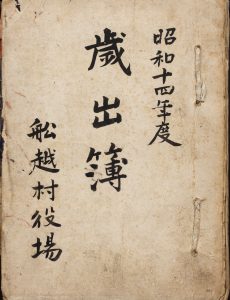 昭和十四年度
歳出簿
舩越村役場